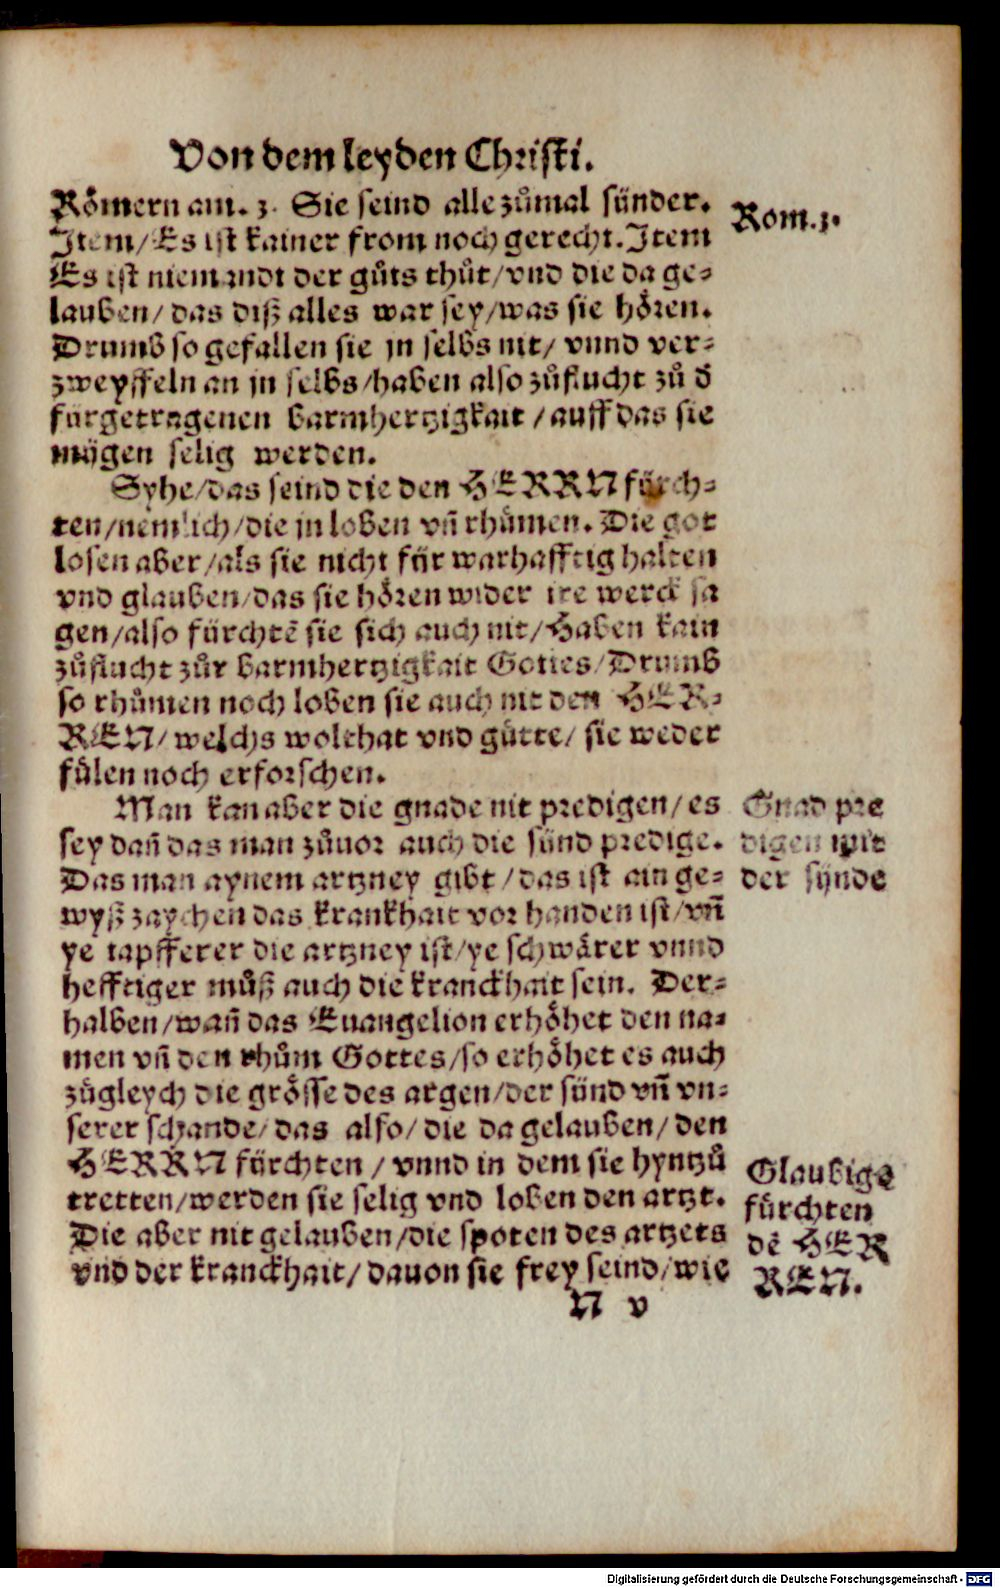 Von dem leyden Christi.
Römern am. 3. Sie seind alle zůmal sünder.
Item/Es ist kainer from noch gerecht. Item
Es ist niemandt der gůts thůt/vnd die da ge⸗
lauben/das diß alles war sey/was sie hören.
Drumb so gefallen sie jn selbs nit/ vnnd ver⸗
zweyffeln an jn selbs/haben also zůflucht zů d̄
fürgetragenen barmhertzigkait/auff das sie
mügen selig werden.
Syhe/das seind die den HERRN fürch⸗
ten/nemlich/die jn loben vn̄ rhůmen. Die got
losen aber/als sie nicht für warhafftig halten
vnd glauben/das sie hören wider ire werck sa
gen/also fürchtē sie sich auch nit/Haben kain
zůflucht zůr barmhertzigkait Gottes/Drumb
so rhůmen noch loben sie auch nit den HER⸗
REN/welchs wolthat vnd gütte/sie weder
fülen noch erforschen.
Man kan aber die gnade nit predigen/es
sey dan̄ das man zůuor auch die sünd predige.
Das man aynem artzney gibt/das ist ain ge⸗
wyß zaychen das krankhait vor handen ist/vn̄
ye tapfferer die artzney ist/ye schwärer vnnd
hefftiger můß auch die kranckhait sein. Der⸗
halben/wan̄ das Euangelion erhöhet den na⸗
men vn̄ den rhům Gottes/so erhöhet es auch
zůgleych die grösse des argen/der sünd vn̄ vn⸗
serer schande/das also/die da gelauben/den
HERRN fürchten/vnnd in dem sie hyntzů
tretten/werden sie selig vnd loben den artzt.
Die aber nit gelauben/die spoten des artzets
vnd der kranckhait/dauon sie frey seind/wie
N v
Rom.3.
Gnad pre
digen mit
der sünde
Glaubige
fürchten
dē HER
REN.
Digitalisierung gefördert durch die Deutsche Forschungsgemeinschaft - DFG